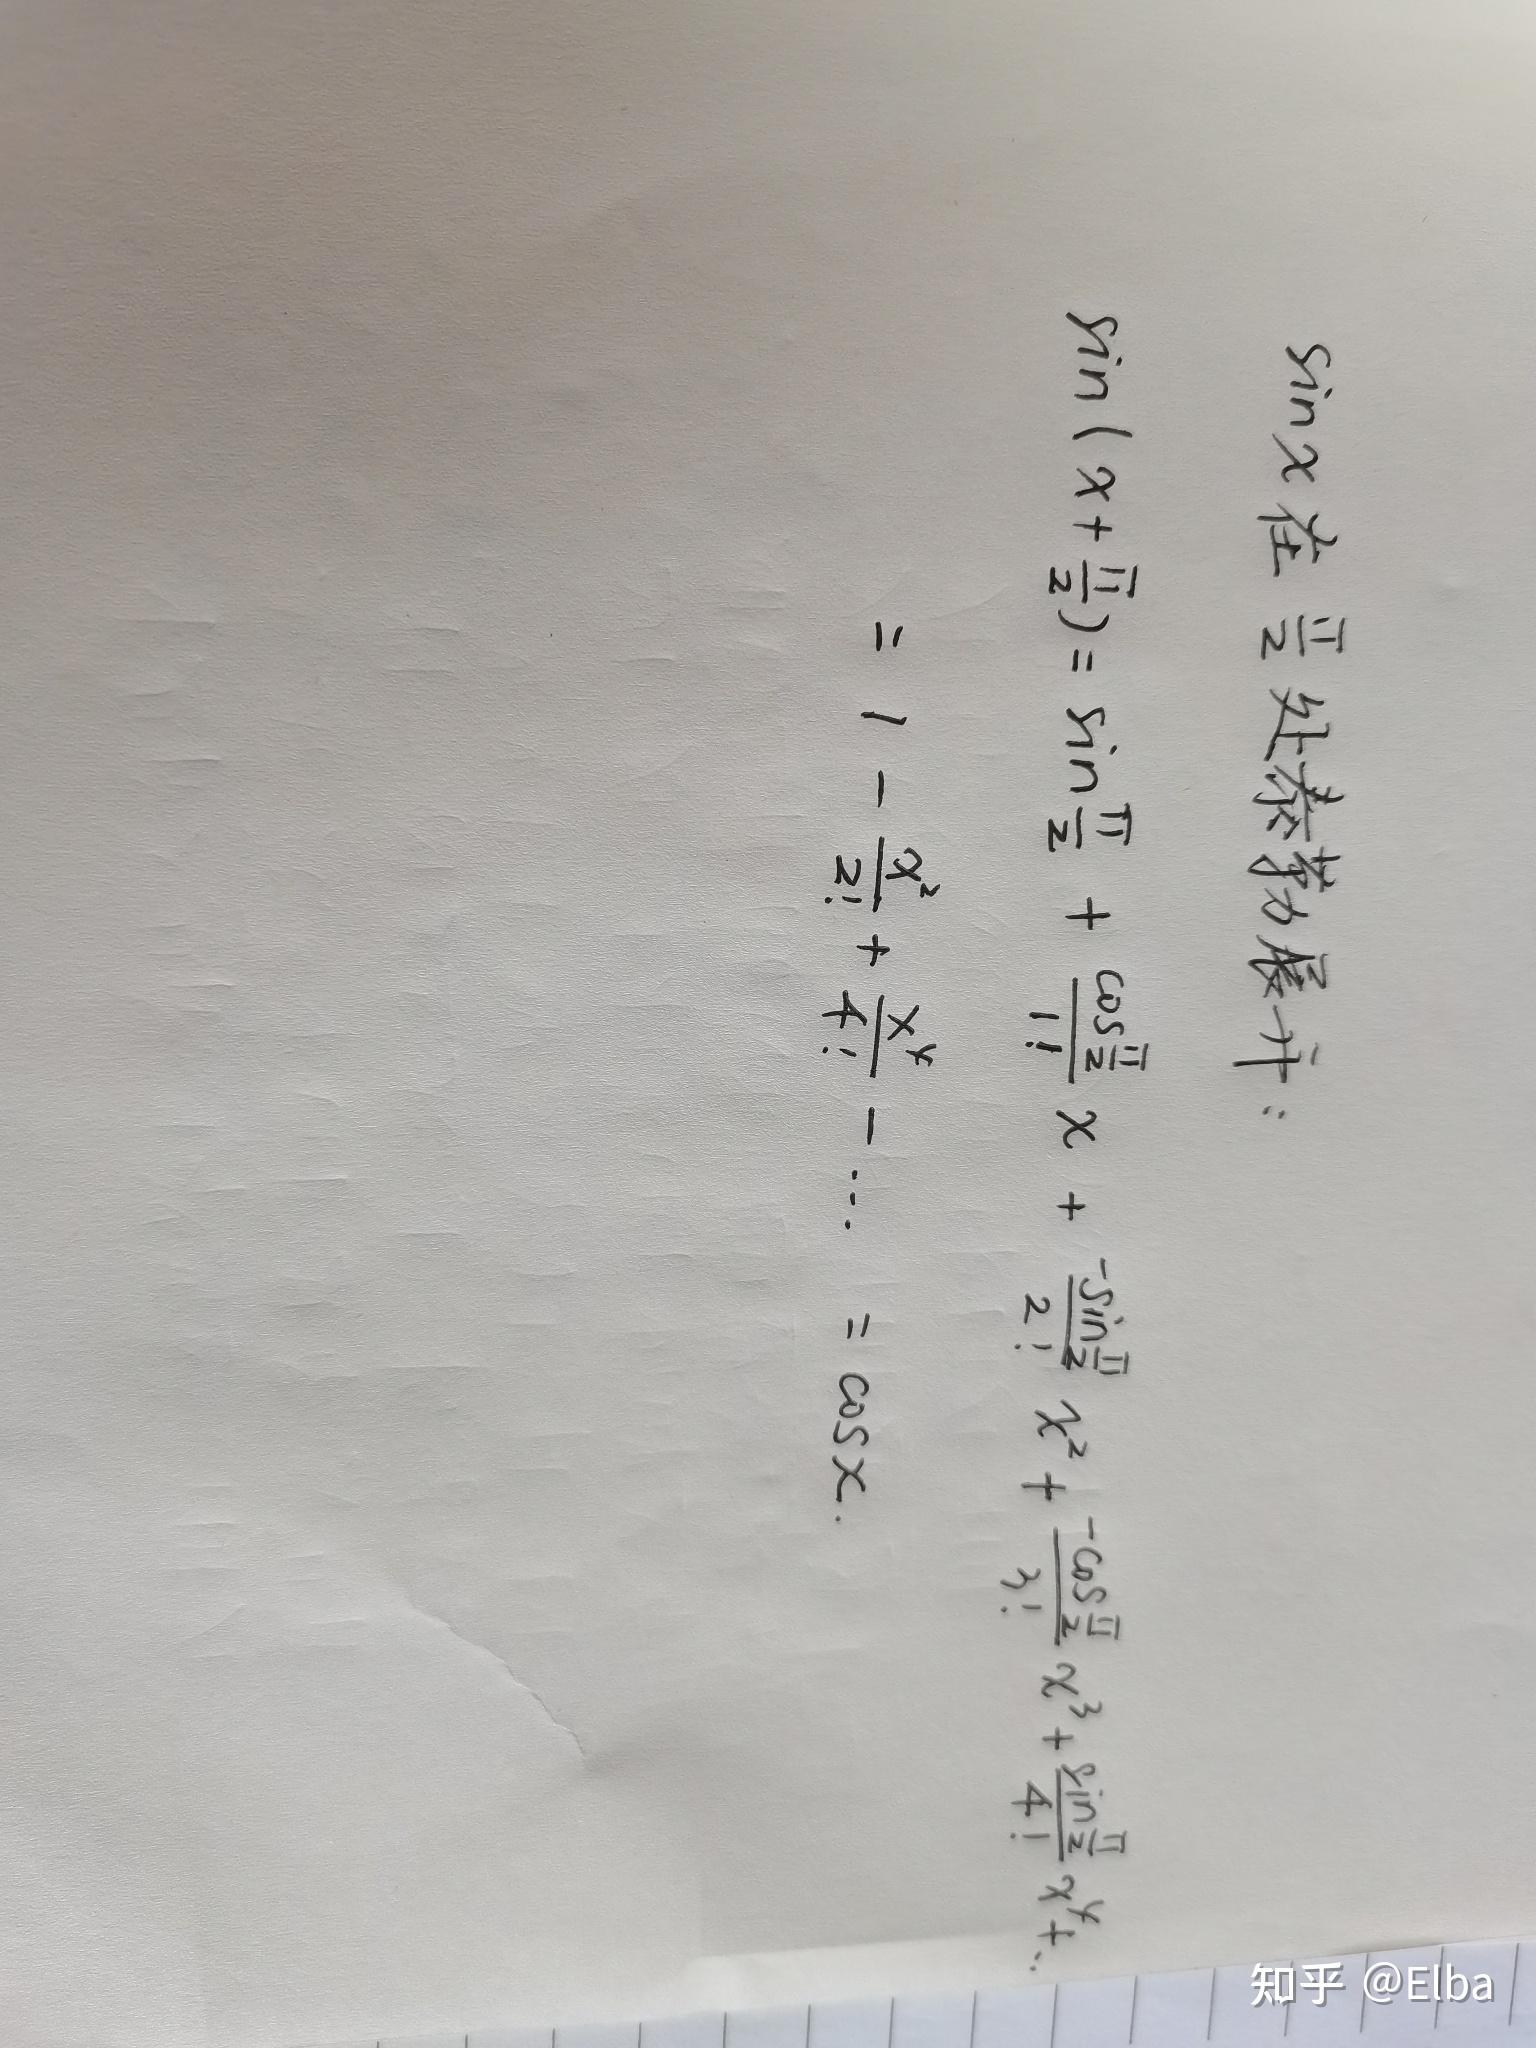 sinx在π/2处泰勒展开:
sin(x+π/2)=sinπ/2 + (cosπ/2)/1! x + (-sinπ/2)/2! x² + (-cosπ/2)/3! x³ + (sinπ/2)/4! x⁴+...
= 1 - x²/2! + x⁴/4! - ... = cosx.
知乎 @Elba